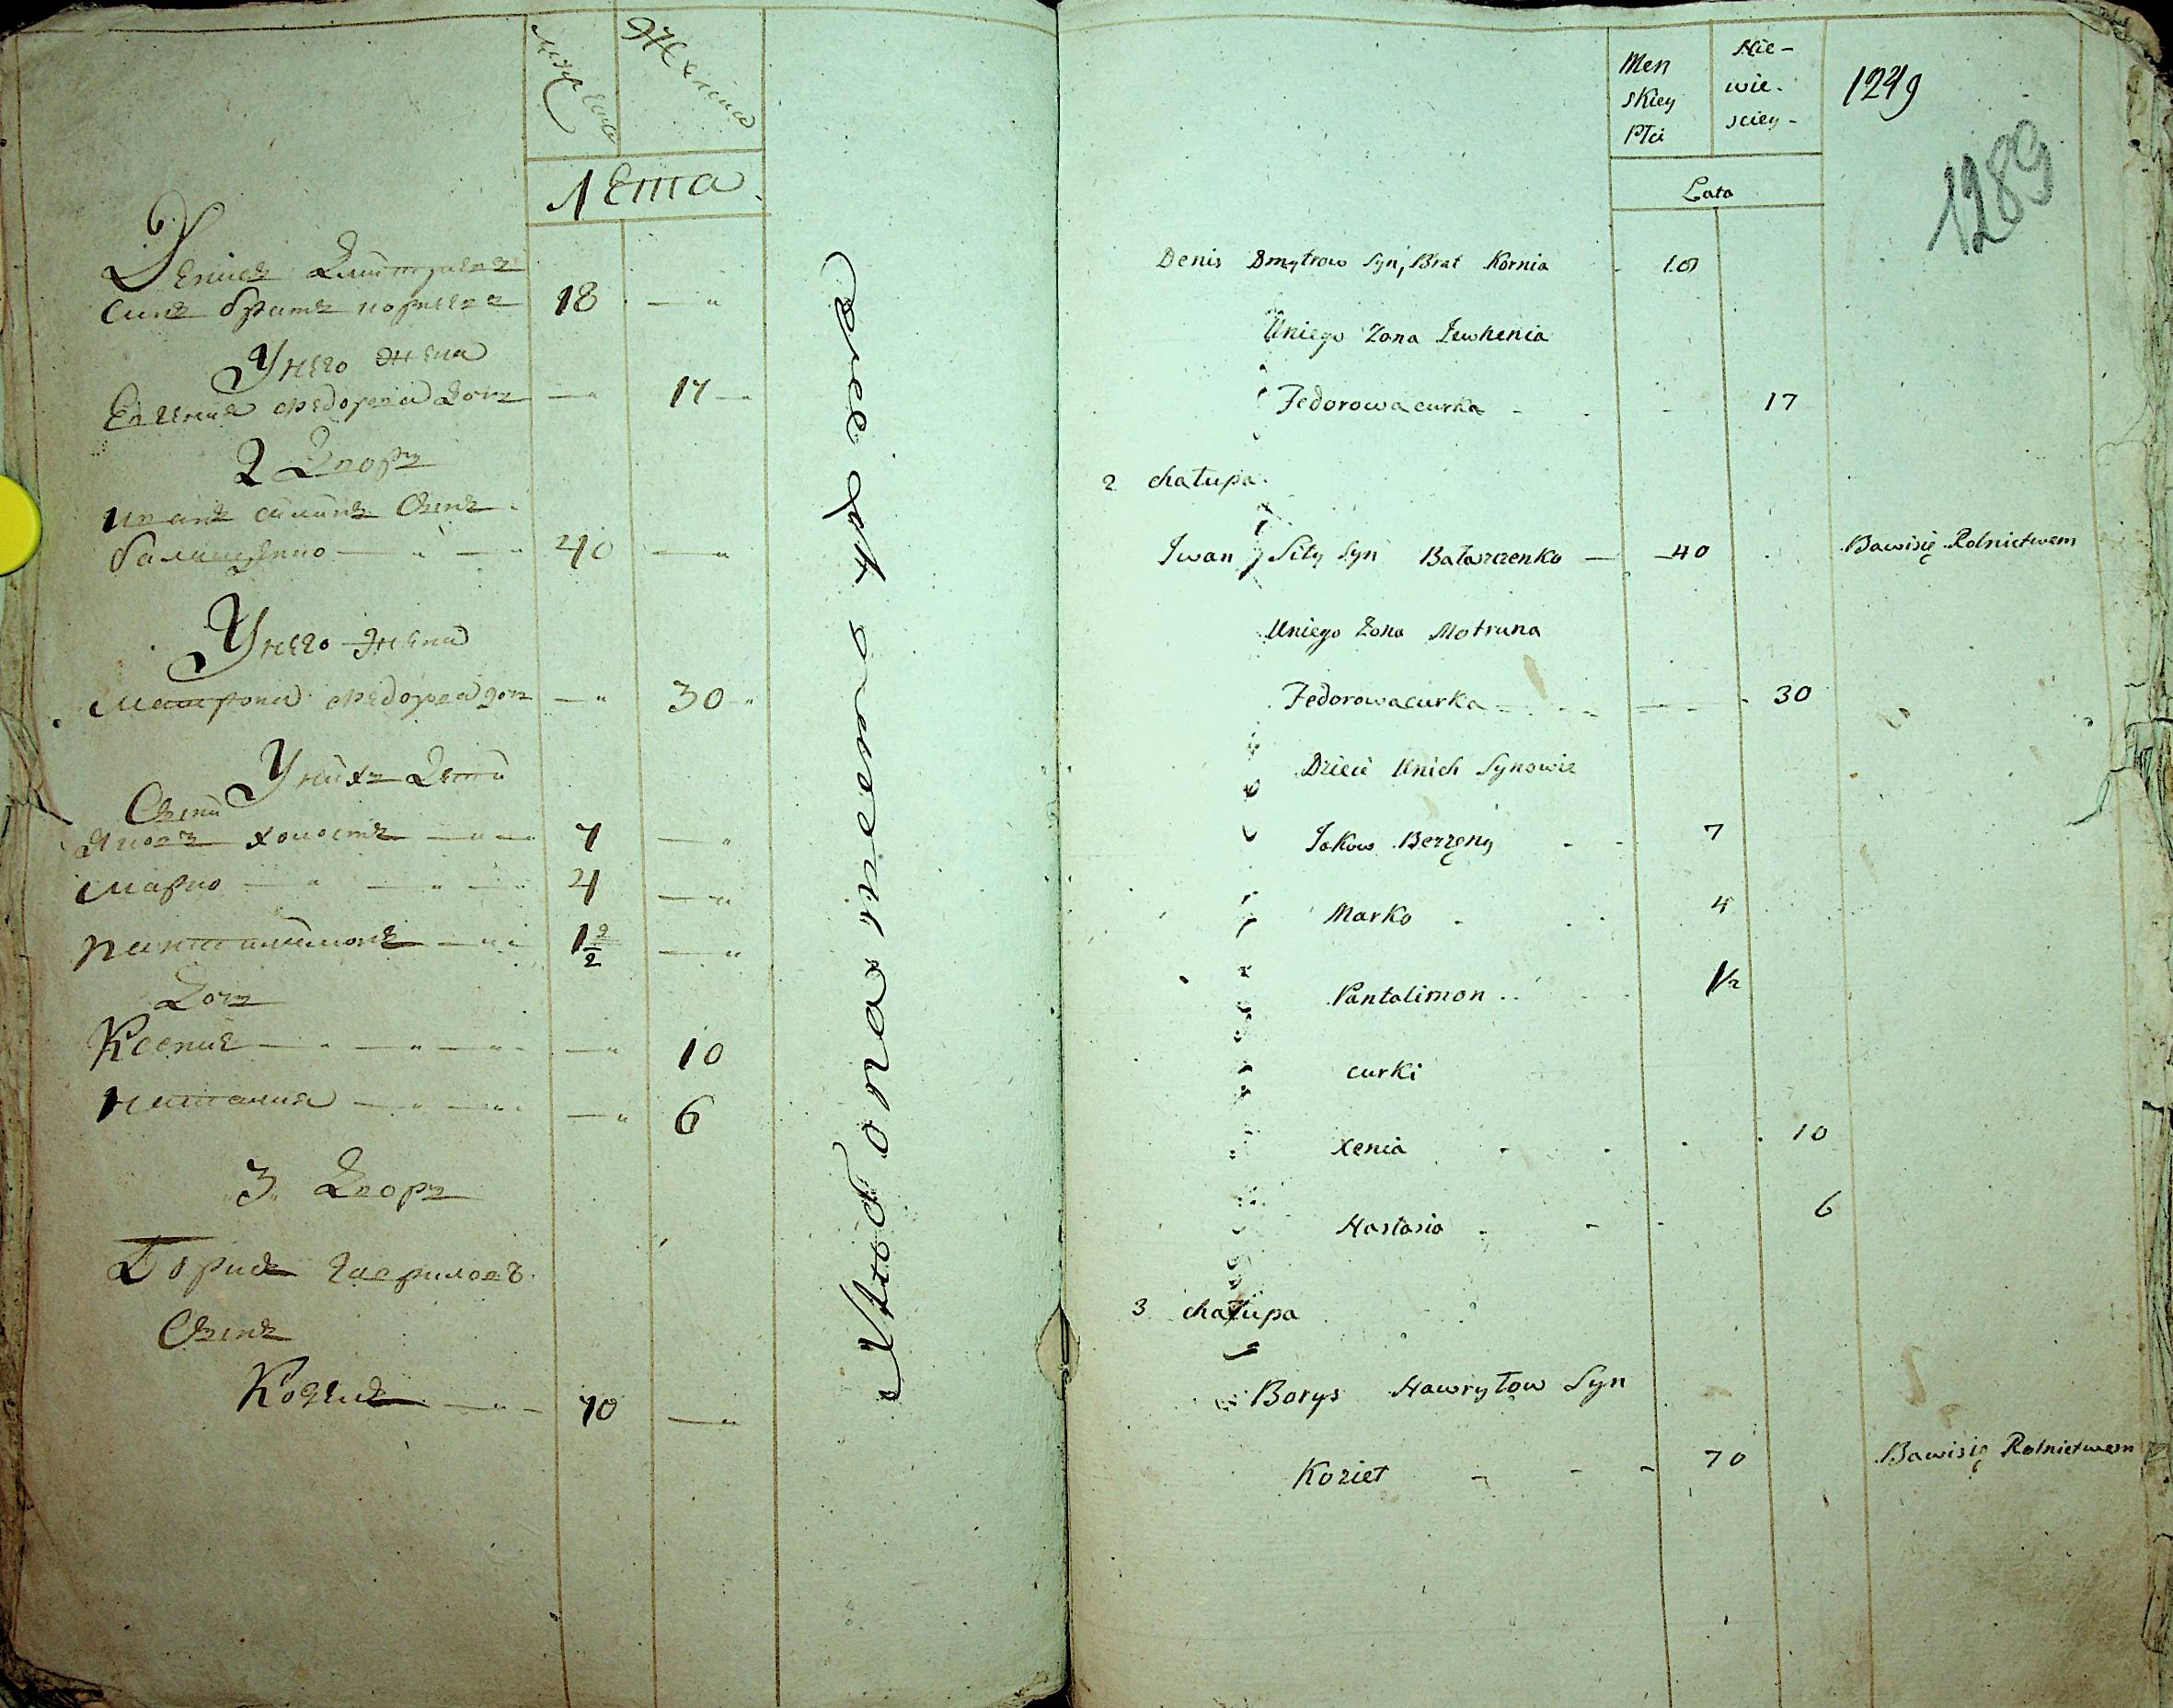 мужеска
Женска
Лета
Денисъ Дмитриевъ
Синъ братъ корнеевъ 18
У него жена
Евгения Федорова дочь 17
2 Дворъ
Иванъ силинъ Сынъ
балащенко 40
У него жена
Матрона Федорова дочь 30
У нихъ дети
Сыны
Яковъ холостъ 7
Марко 4
Пантилимонъ 1 1/2
Дочь
Ксения 10
Наталия 6
3 Дворъ
Борисъ гавриловъ
Сынъ
Козелъ 70
Men Nie- 1249
skiey wie-
Płci sciey-
1289
Lata
Denis Dmytrow Syn, Brat Kornia 18
Uniego Zona Jewhenia
Fedorowa curka 17
2 chałupa
Iwan Siły Syn Bałaszczenko 40 Bawisię Rolnictwem
Uniego Zona Motruna
Fedorowa curka 30
Dzieci Unich Synowie
Jakow Bezzęny 7
Marko 4
Pantalimon 1½
curki
Xenia 10
Nastasia 6
3 chałupa
Borys Hawryłow Syn
Kozieł 70 Bawisię Rolnictwem